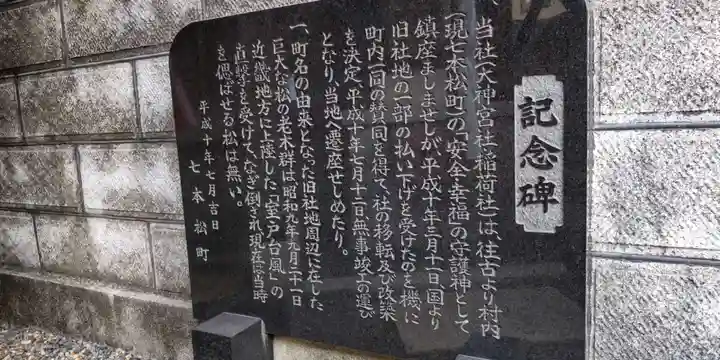 記念碑
一、当社(天神宮社稲荷社)は、往古より村内
(現七本松町)の「安全・幸福」の守護神として
鎮座ましませしが、平成十年三月十一日、国より
旧社地の一部の払い下げを受けたのを機に
町内一同の賛同を得て、社の移転及び改築
を決定、平成十年七月十二日無事竣工の運び
となり、当地へ遷座せしめたり。
一、町名の由来となった旧社地周辺に在した
巨大な松の老木群は昭和九年九月二十一日
近畿地方に上陸した「室戸台風」の
直撃を受けて、なぎ倒され現在は当時
を偲ばせる松は無い。
平成十年七月吉日
七本松町